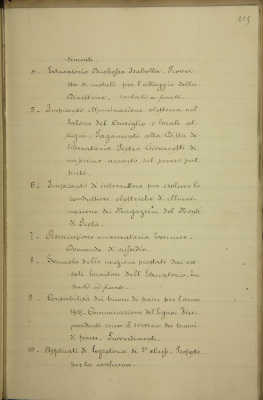 215
dimenti
4. - Educatorio Duchessa Isabella. Provvi-
sta di mobili per l'alloggio della
Direttrice.
5. - Impianto illuminazione elettrica nel
Salone del Consiglio e locali at-
tigui. Pagamento alla Ditta
Pietro di
un primo acconto sul prezzo pat-
tuito.
6. - Impianto di interruttore per isolare le
condutture elettriche di illumi-
nazione dei Magazzini del Monti
di Pietà.
7. - Associazione universitaria Torinese.
Domanda di sussidio.
8. - Svincolo delle cauzioni prestate dai ces-
sati fornitori dell'Educatorio.
9. - Contabilità dei buoni di pane per l'anno
1909. Comunicazione del Signor Vice
Presidente circa il servizio dei buoni
di pane. Provvedimenti.
10. - Applicati di Segreteria di 2a classe. Proposte
per la conferma.